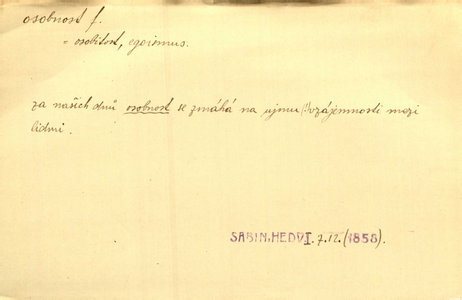 osobnost f.
= osobitost, egoismus.
za našich dnů osobnost se zmáhá na ujmu (!) vzájemnosti mezi
lidmi.
SABIN, HEDV I. 7.12. (1858).